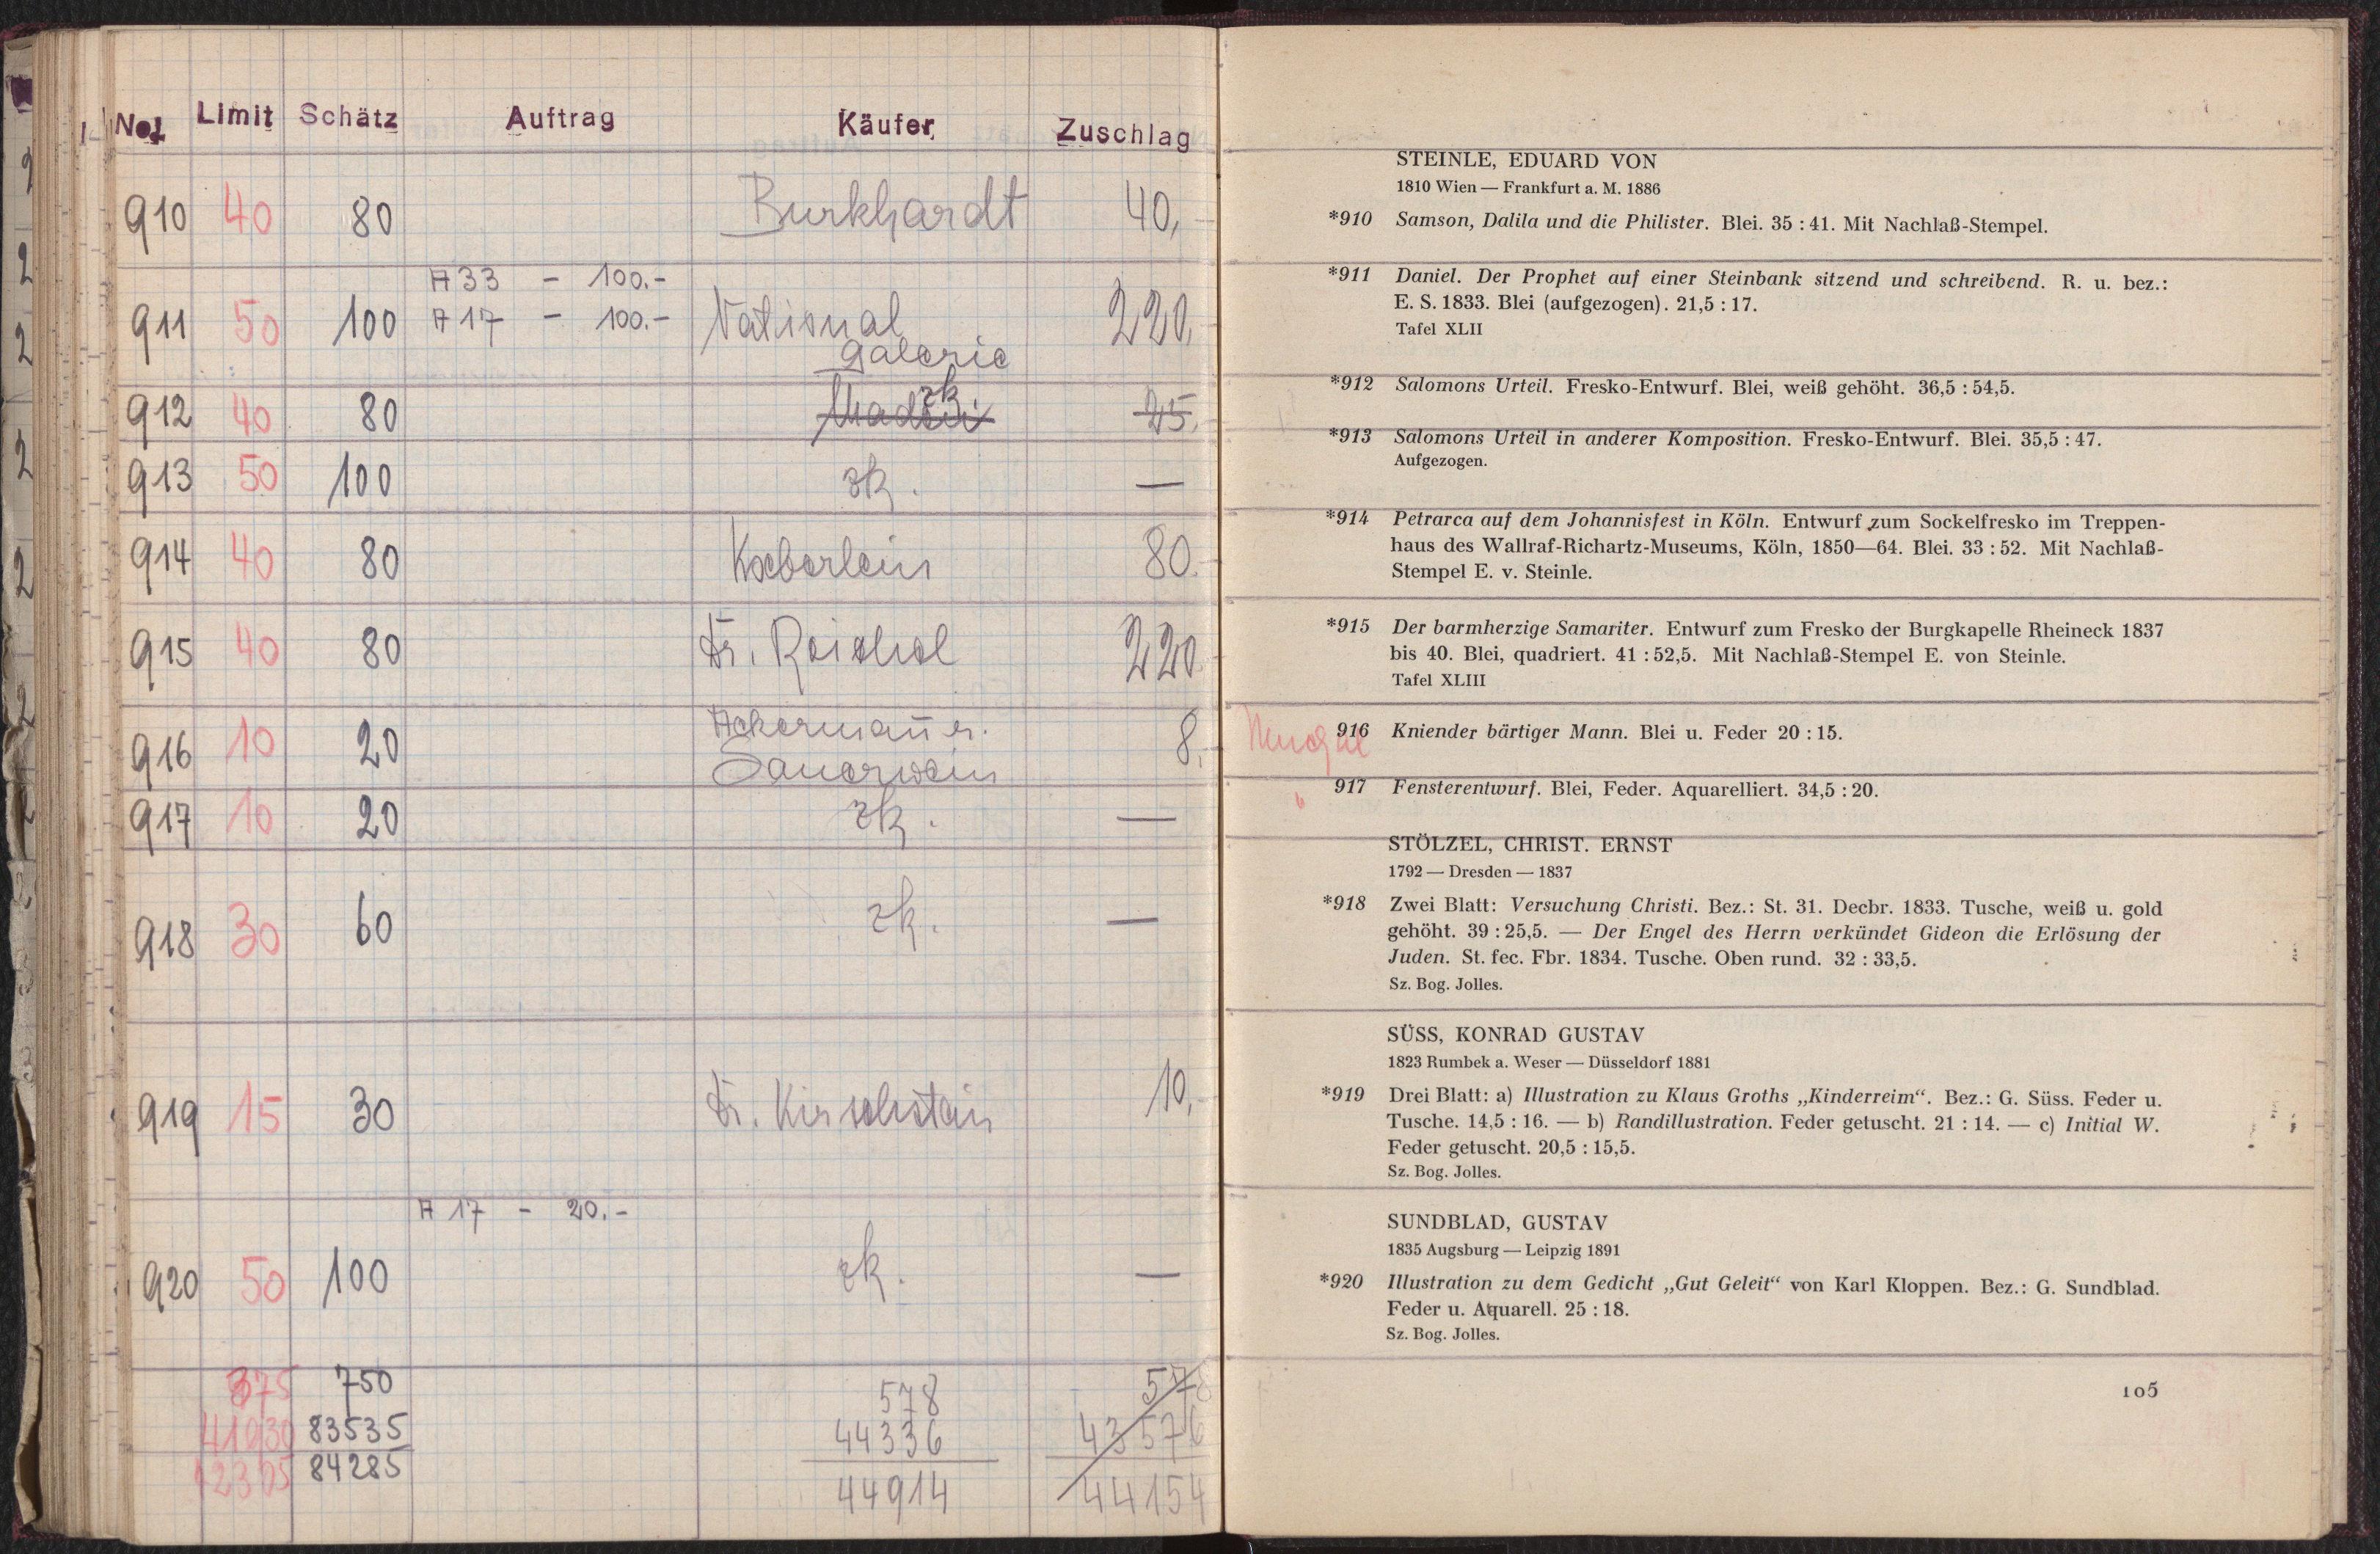 No. Limit Schätz Auftrag Käufer Zuschlag
910 40 80 Burkhardt 40,-
A 33 - 100.-
911 50 100 A 17 - 100.- National 220,-
galerie
912 40 80 zk. 25,
913 50 100 zk. —
914 40 80 Koeberlein 80.-
915 40 80 Dr. Reichel 220
916 10 20 Ackermann u. 8,-
Sauerwein
917 10 20 zk. —
918 30 60 zk. —
919 15 30 Dr. Kirschstein 10,-
A 17 - 20.-
920 50 100 zk. —
375 750 578 578
41930 83535 44336 43576
42305 84285 44914 44154
STEINLE, EDUARD VON
1810 Wien — Frankfurt a. M. 1886
*910 Samson, Dalila und die Philister. Blei. 35 : 41. Mit Nachlaß-Stempel.
*911 Daniel. Der Prophet auf einer Steinbank sitzend und schreibend. R. u. bez.:
E. S. 1833. Blei (aufgezogen). 21,5 : 17.
Tafel XLII
*912 Salomons Urteil. Fresko-Entwurf. Blei, weiß gehöht. 36,5 : 54,5.
*913 Salomons Urteil in anderer Komposition. Fresko-Entwurf. Blei. 35,5 : 47.
Aufgezogen.
*914 Petrarca auf dem Johannisfest in Köln. Entwurf zum Sockelfresko im Treppen-
haus des Wallraf-Richartz-Museums, Köln, 1850—64. Blei. 33 : 52. Mit Nachlaß-
Stempel E. v. Steinle.
*915 Der barmherzige Samariter. Entwurf zum Fresko der Burgkapelle Rheineck 1837
bis 40. Blei, quadriert. 41 : 52,5. Mit Nachlaß-Stempel E. von Steinle.
Tafel XLIII
916 Kniender bärtiger Mann. Blei u. Feder 20 : 15.
" 917 Fensterentwurf. Blei, Feder. Aquarelliert. 34,5 : 20.
STÖLZEL, CHRIST. ERNST
1792 — Dresden — 1837
*918 Zwei Blatt: Versuchung Christi. Bez.: St. 31. Decbr. 1833. Tusche, weiß u. gold
gehöht. 39 : 25,5. — Der Engel des Herrn verkündet Gideon die Erlösung der
Juden. St. fec. Fbr. 1834. Tusche. Oben rund. 32 : 33,5.
Sz. Bog. Jolles.
SÜSS, KONRAD GUSTAV
1823 Rumbek a. Weser — Düsseldorf 1881
*919 Drei Blatt: a) Illustration zu Klaus Groths „Kinderreim“. Bez.: G. Süss. Feder u.
Tusche. 14,5 : 16. — b) Randillustration. Feder getuscht. 21 : 14. — c) Initial W.
Feder getuscht. 20,5 : 15,5.
Sz. Bog. Jolles.
SUNDBLAD, GUSTAV
1835 Augsburg — Leipzig 1891
*920 Illustration zu dem Gedicht „Gut Geleit“ von Karl Kloppen. Bez.: G. Sundblad.
Feder u. Aquarell. 25 : 18.
Sz. Bog. Jolles.
105